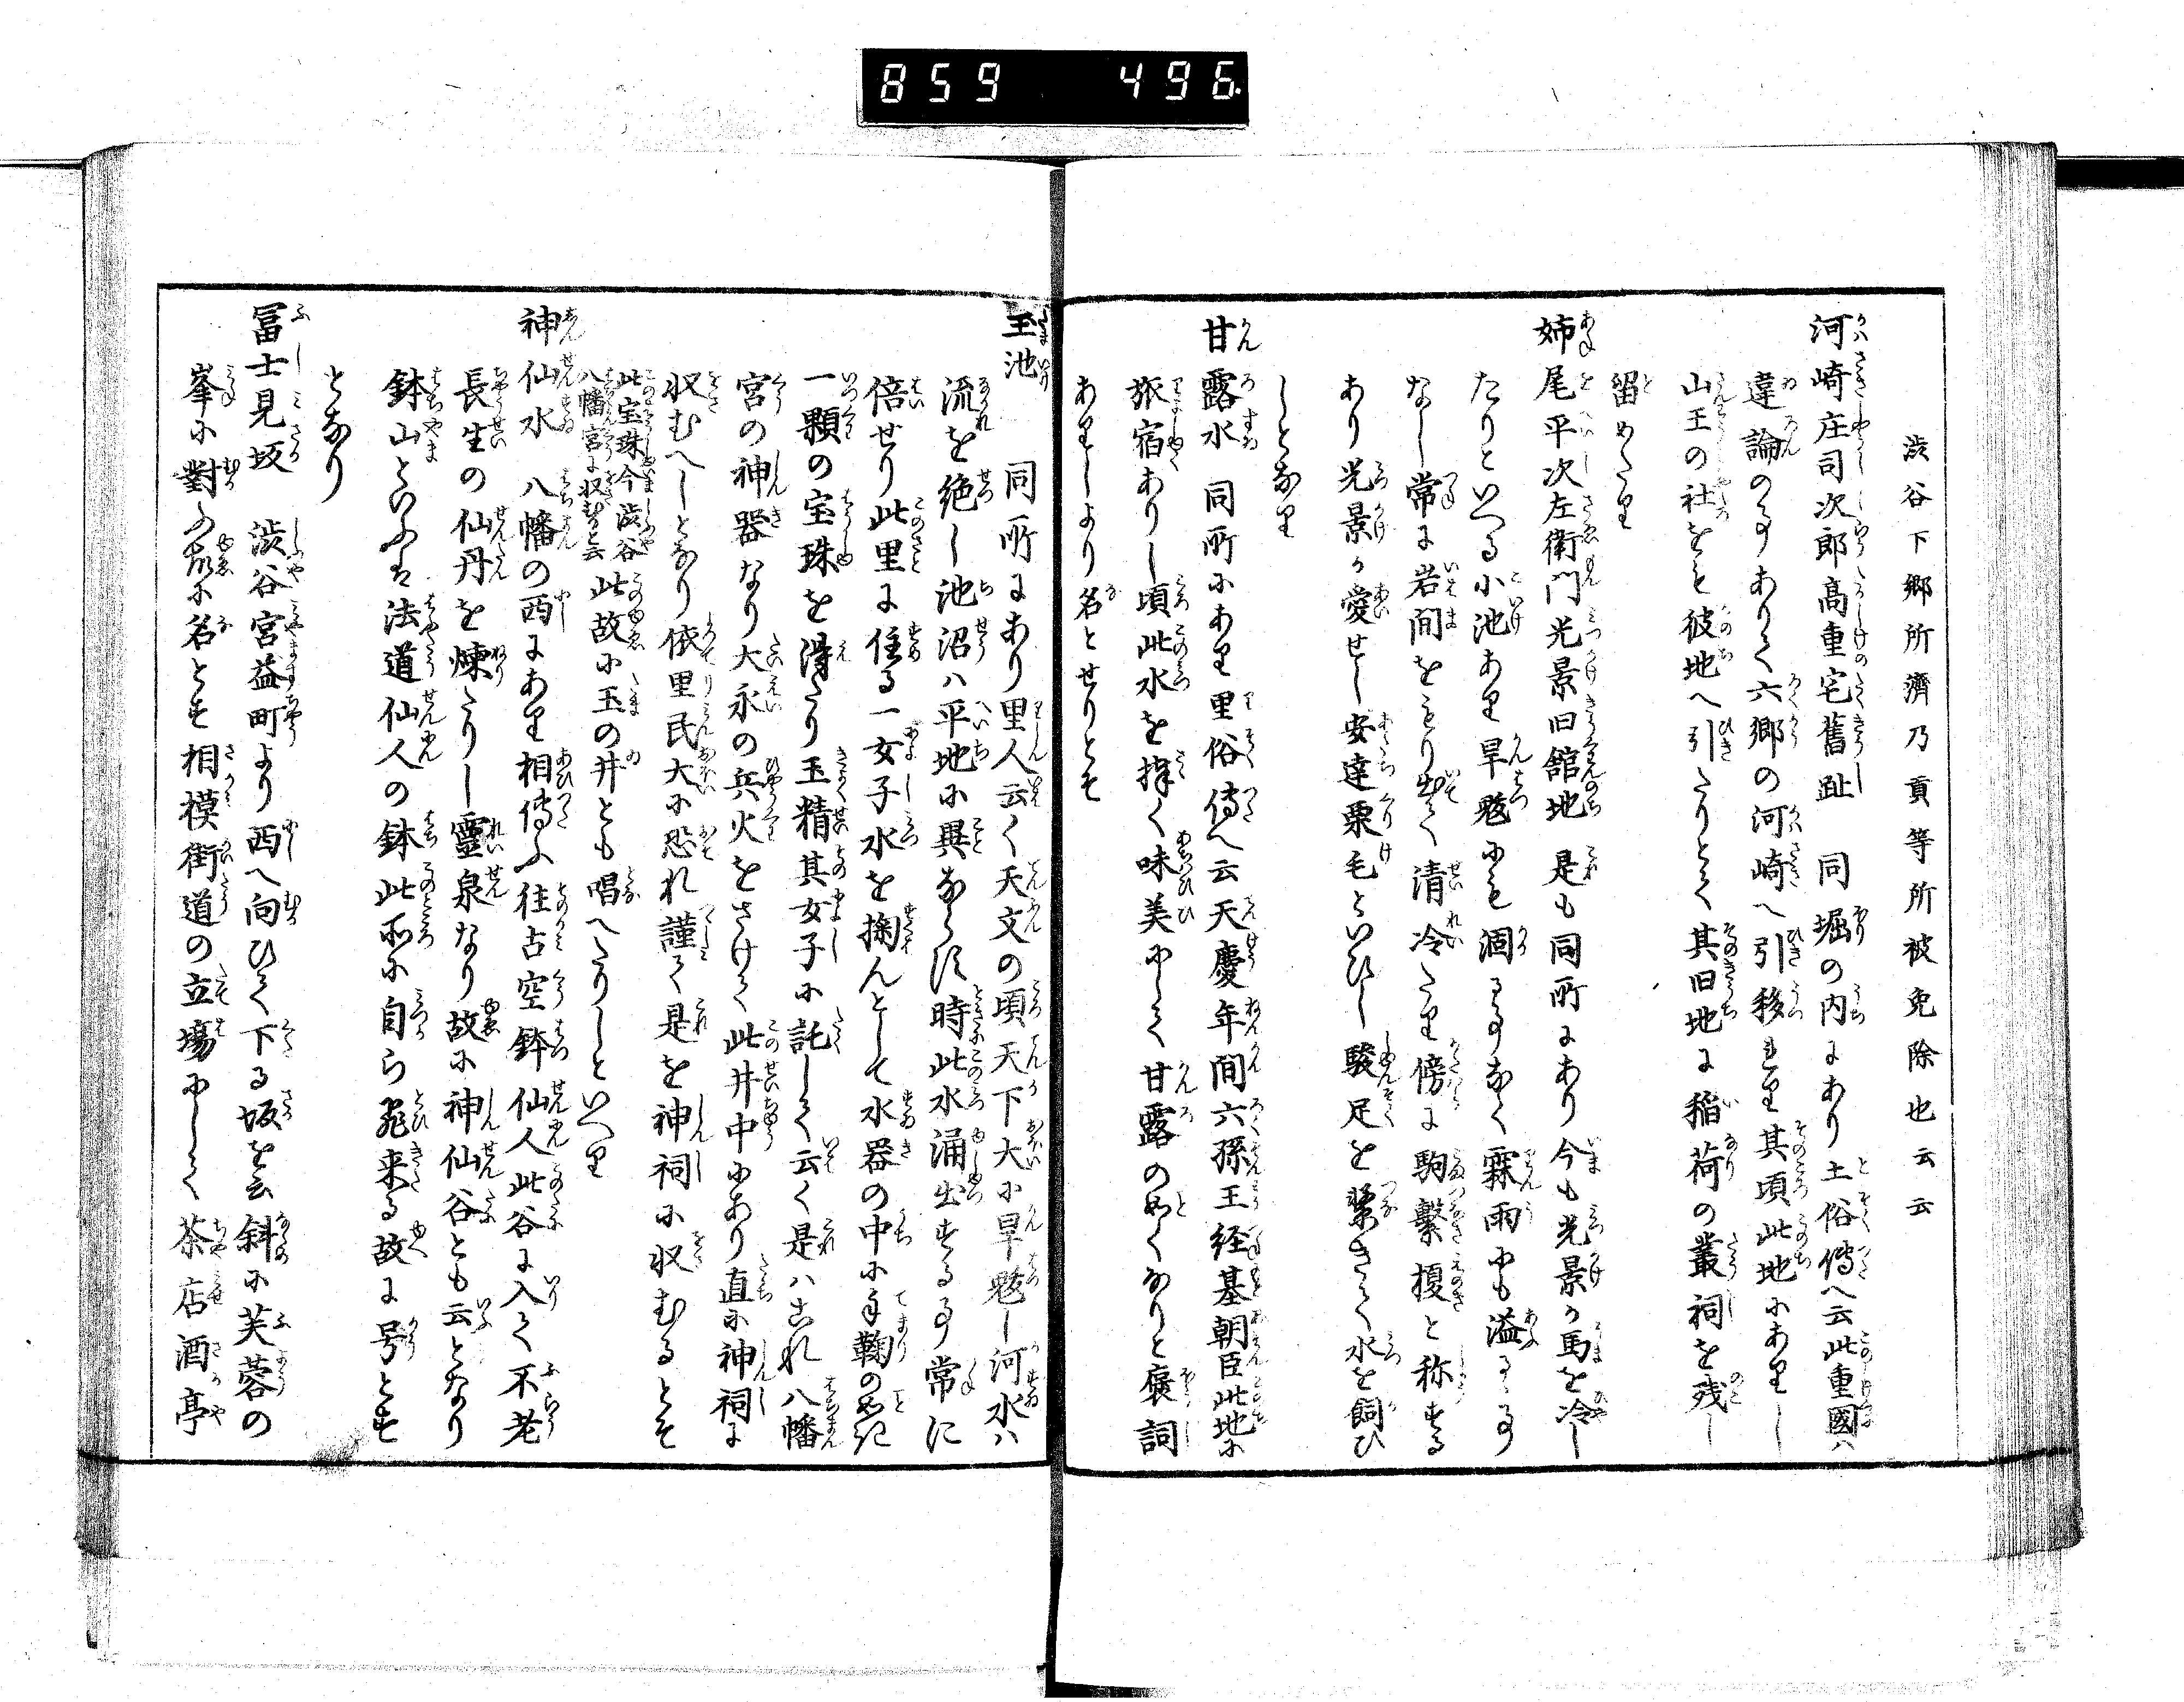 859 496
渋谷下郷所濟乃貢等所被免除也云云
河崎庄司次郎高重宅舊趾 同堀の内にあり土俗傳へ云此重國ハ
違論の事ありて六郷の河崎へ引移れり其頃此地にありし
山王の社をも彼地へ引たりとて其旧地に稲荷の叢祠を残し
留めたり
姉尾平次左衛門光景旧舘地 是も同所にあり今も光景か馬を冷し
たりといへる小池あり旱魃にも涸るゝ事なく霖雨にも溢るゝ事
なし常に岩間をもり出て清冷たり傍に駒繋榎と称する
あり光景か愛せし安達栗毛といひし駿足を繋きて水を飼ひ
しとなり
甘露水 同所にあり里俗傳へ云天慶年間六孫王経基朝臣此地に
旅宿ありし頃此水を擇く味美にして甘露の如くなりと褒詞
ありしより名とせりとそ
玉池 同所にあり里人云く天文の頃天下大に旱魃し河水ハ
流を絶し池沼ハ平地に異ならす時此水涌出する事常に
倍せり此里に住る一女子水を掬んとして水器の中に手鞠の如き
一顆の宝珠を得たり玉精其女子に託して云く是ハこれ八幡
宮の神器なり大永の兵火をさけて此井中にあり直に神祠に
収むへしとなり依里民大に恐れ謹て是を神祠に収むるとそ
此宝珠今渋谷
八幡宮に収むと云 此故に玉の井とも唱へたりしといへり
神仙水 八幡の西にあり相傳ふ往古空鉢仙人此谷に入て不老
長生の仙丹を煉たりし靈泉なり故に神仙谷とも云となり
鉢山といふは法道仙人の鉢此所に自ら飛来る故に号とす
となり
冨士見坂 渋谷宮益町より西へ向ひて下る坂を云斜に芙蓉の
峯に對ふ故に名とす相模街道の立場にして茶店酒亭